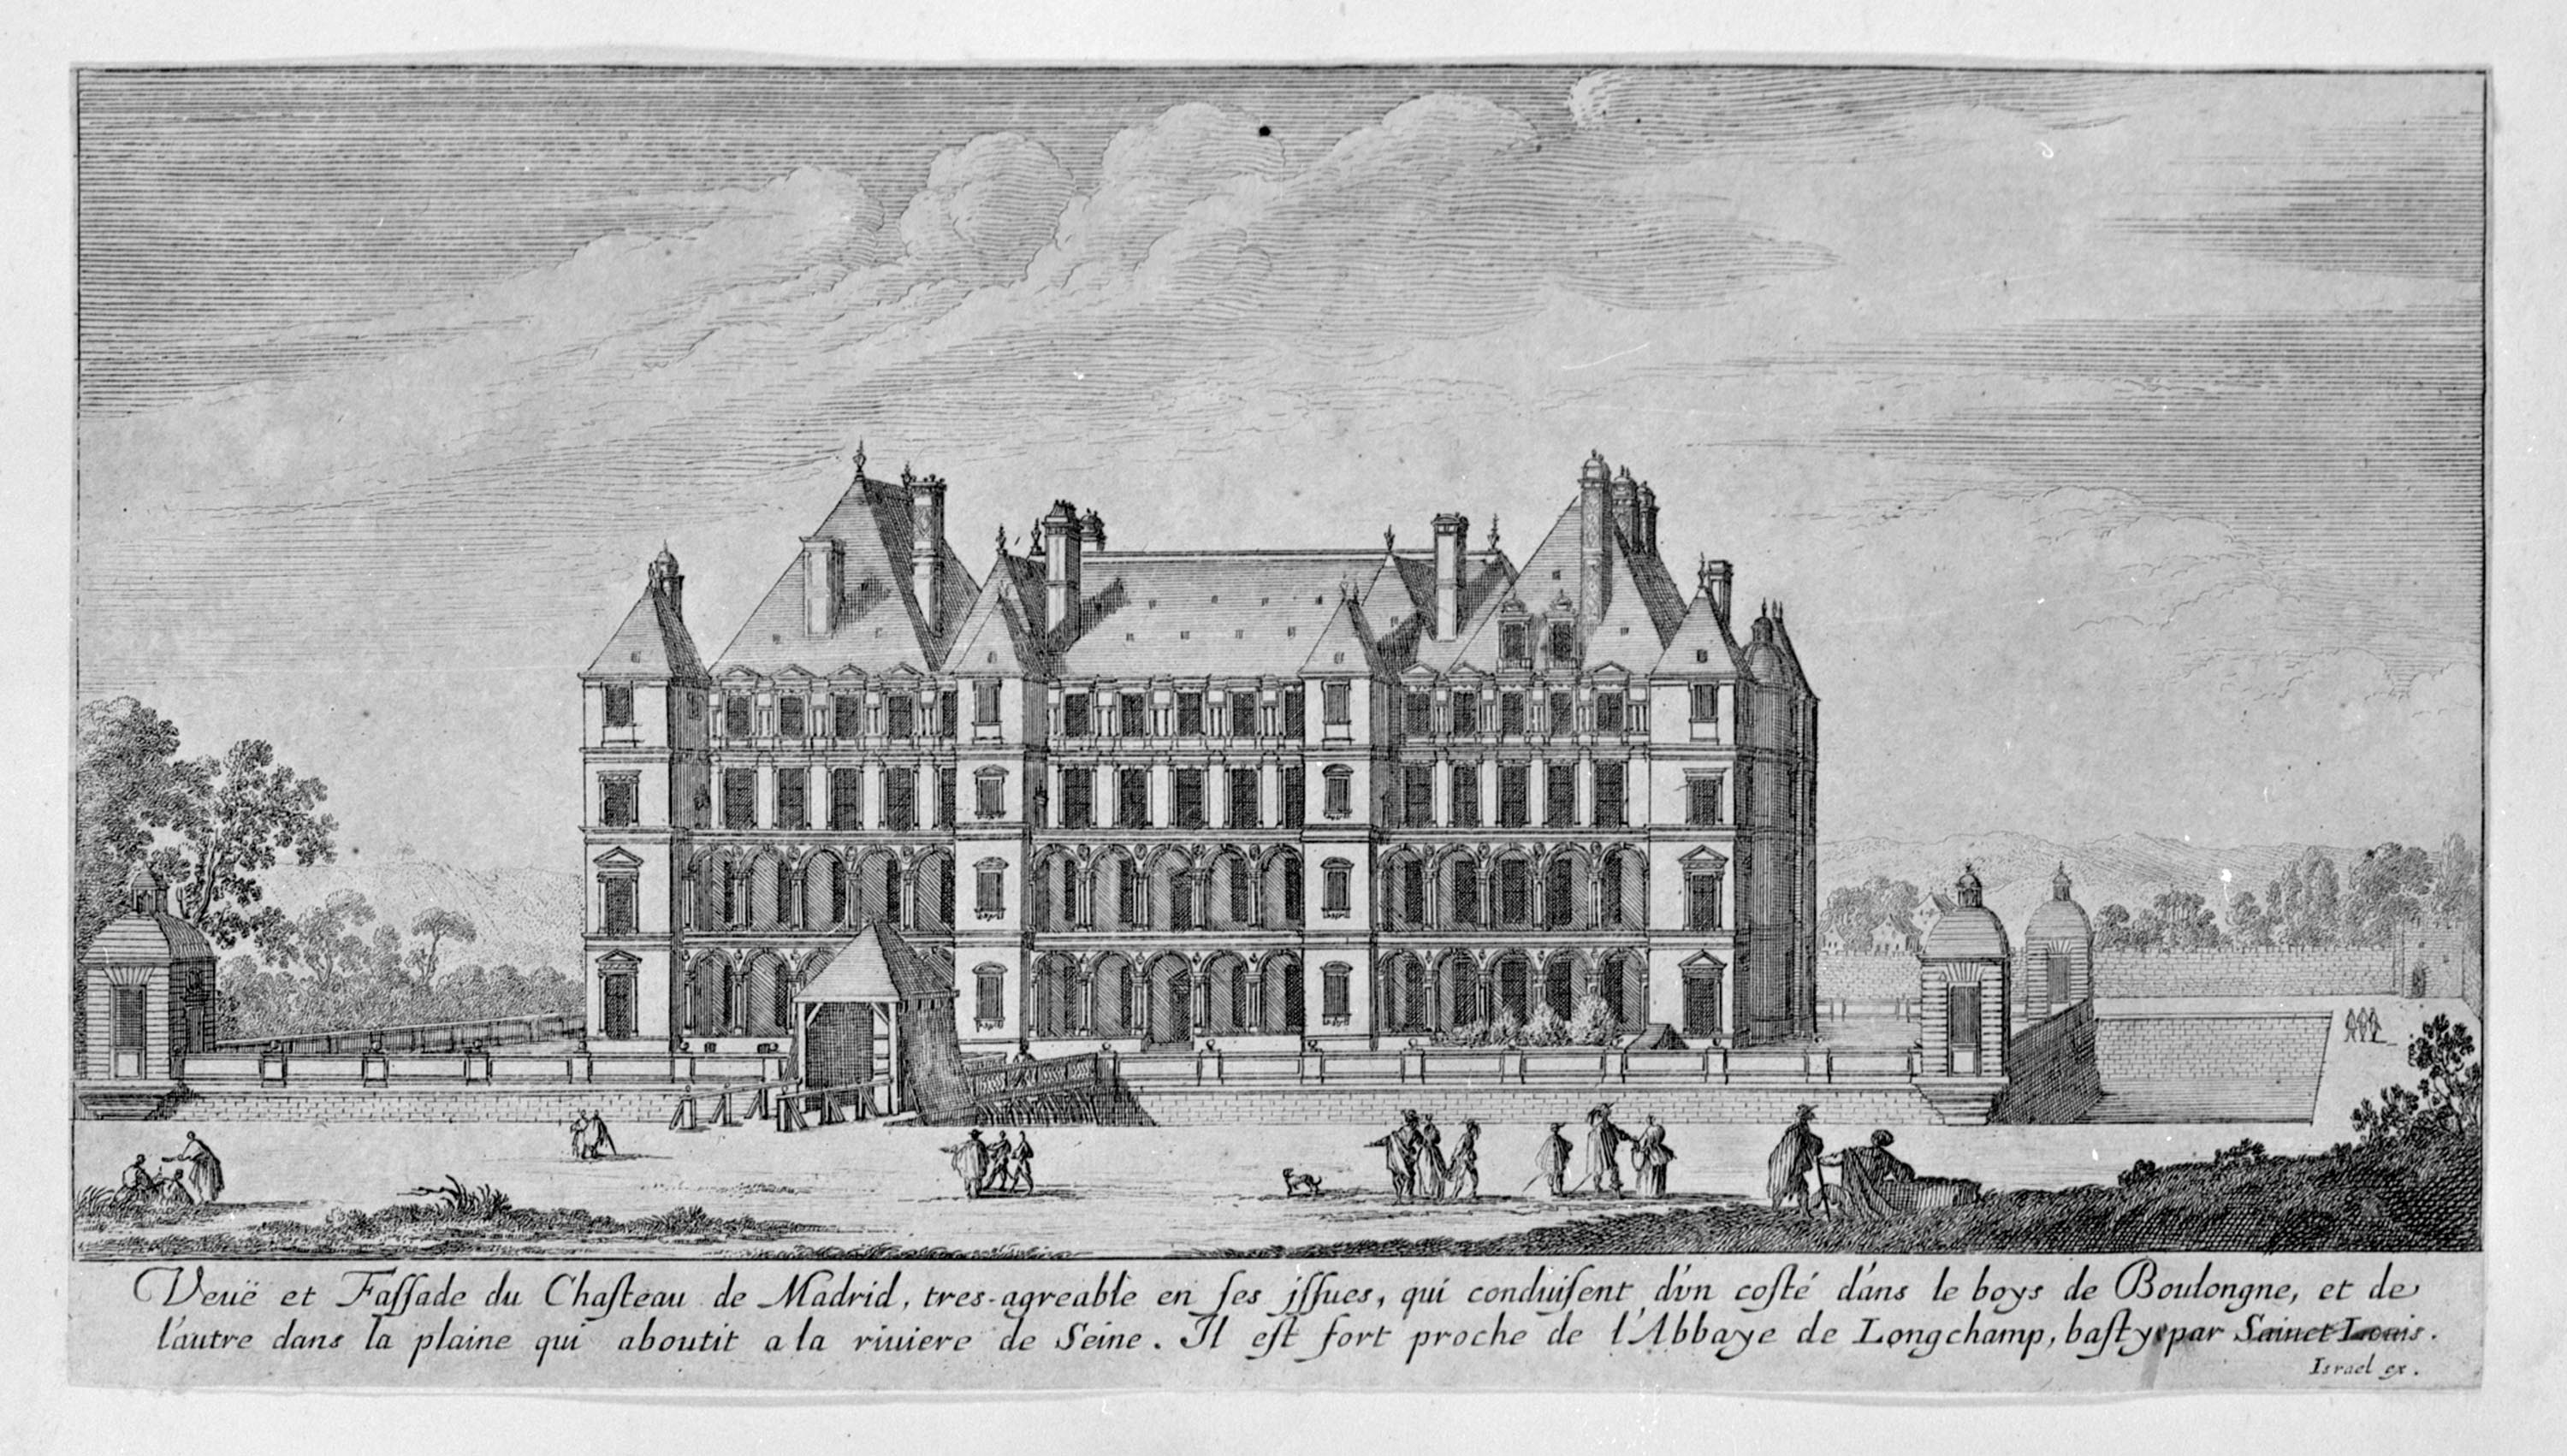 Veuë et Faſſade du Chaſteau de Madrid, tres-agreable en ſes jſſues, qui conduiſent d'vn coſté d'ans le boys de Boulongne, et de
l'autre dans la plaine qui aboutit a la riuiere de Seine. Il eſt fort proche de l'Abbaye de Longchamp, baſty par Sainct Louis.
Israel ex.